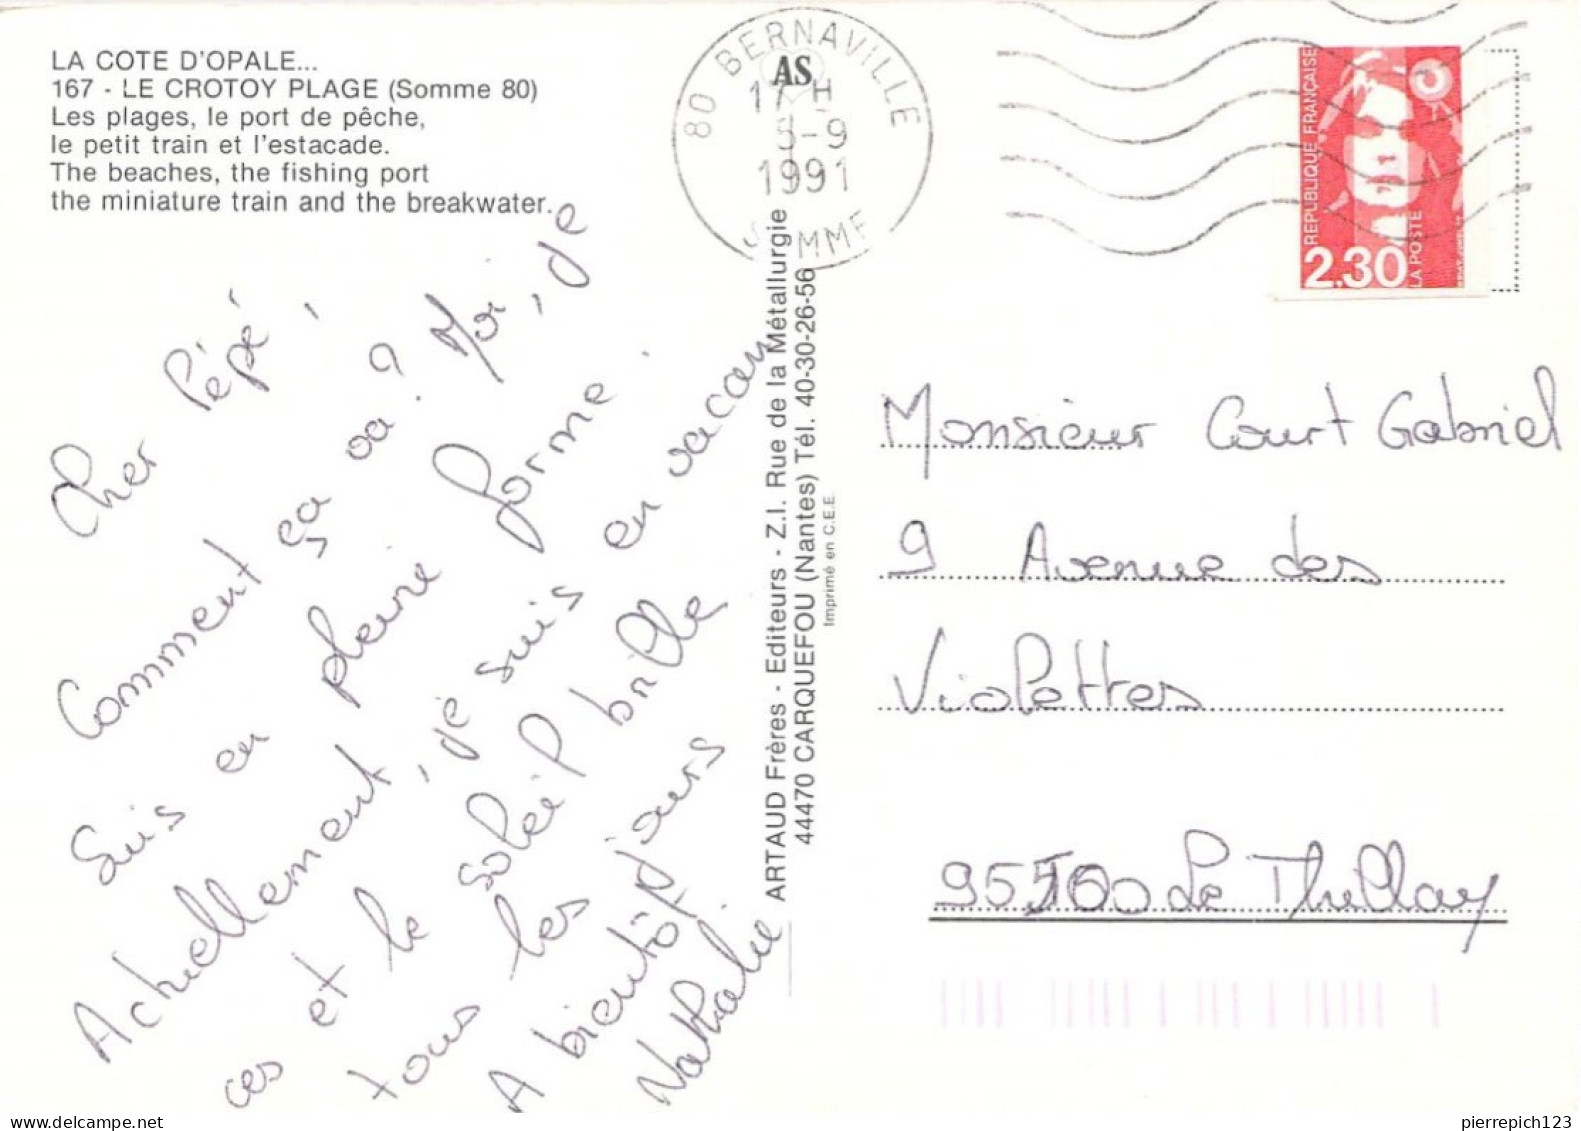 LA COTE D'OPALE...
167 - LE CROTOY PLAGE (Somme 80)
Les plages, le port de pêche,
le petit train et l'estacade.
The beaches, the fishing port
the miniature train and the breakwater.
80 BERNAVILLE
AS
17 H
-9
1991
MME
RÉPUBLIQUE FRANÇAISE
LA POSTE
2.30
Cher Pépé,
Comment ça va ? Moi, je
suis en pleine forme.
Actuellement, je suis en vacan
ces et le soleil brille
tous les jours
A bientôt
Nathalie
ARTAUD Frères - Editeurs - Z.I. Rue de la Métallurgie
44470 CARQUEFOU (Nantes) Tél. 40-30-26-56
Imprimé en C.E.E.
Monsieur Court Gabriel
9 Avenue des
Violettes
95500 Le Thillay
delcampe.net
pierrepich123